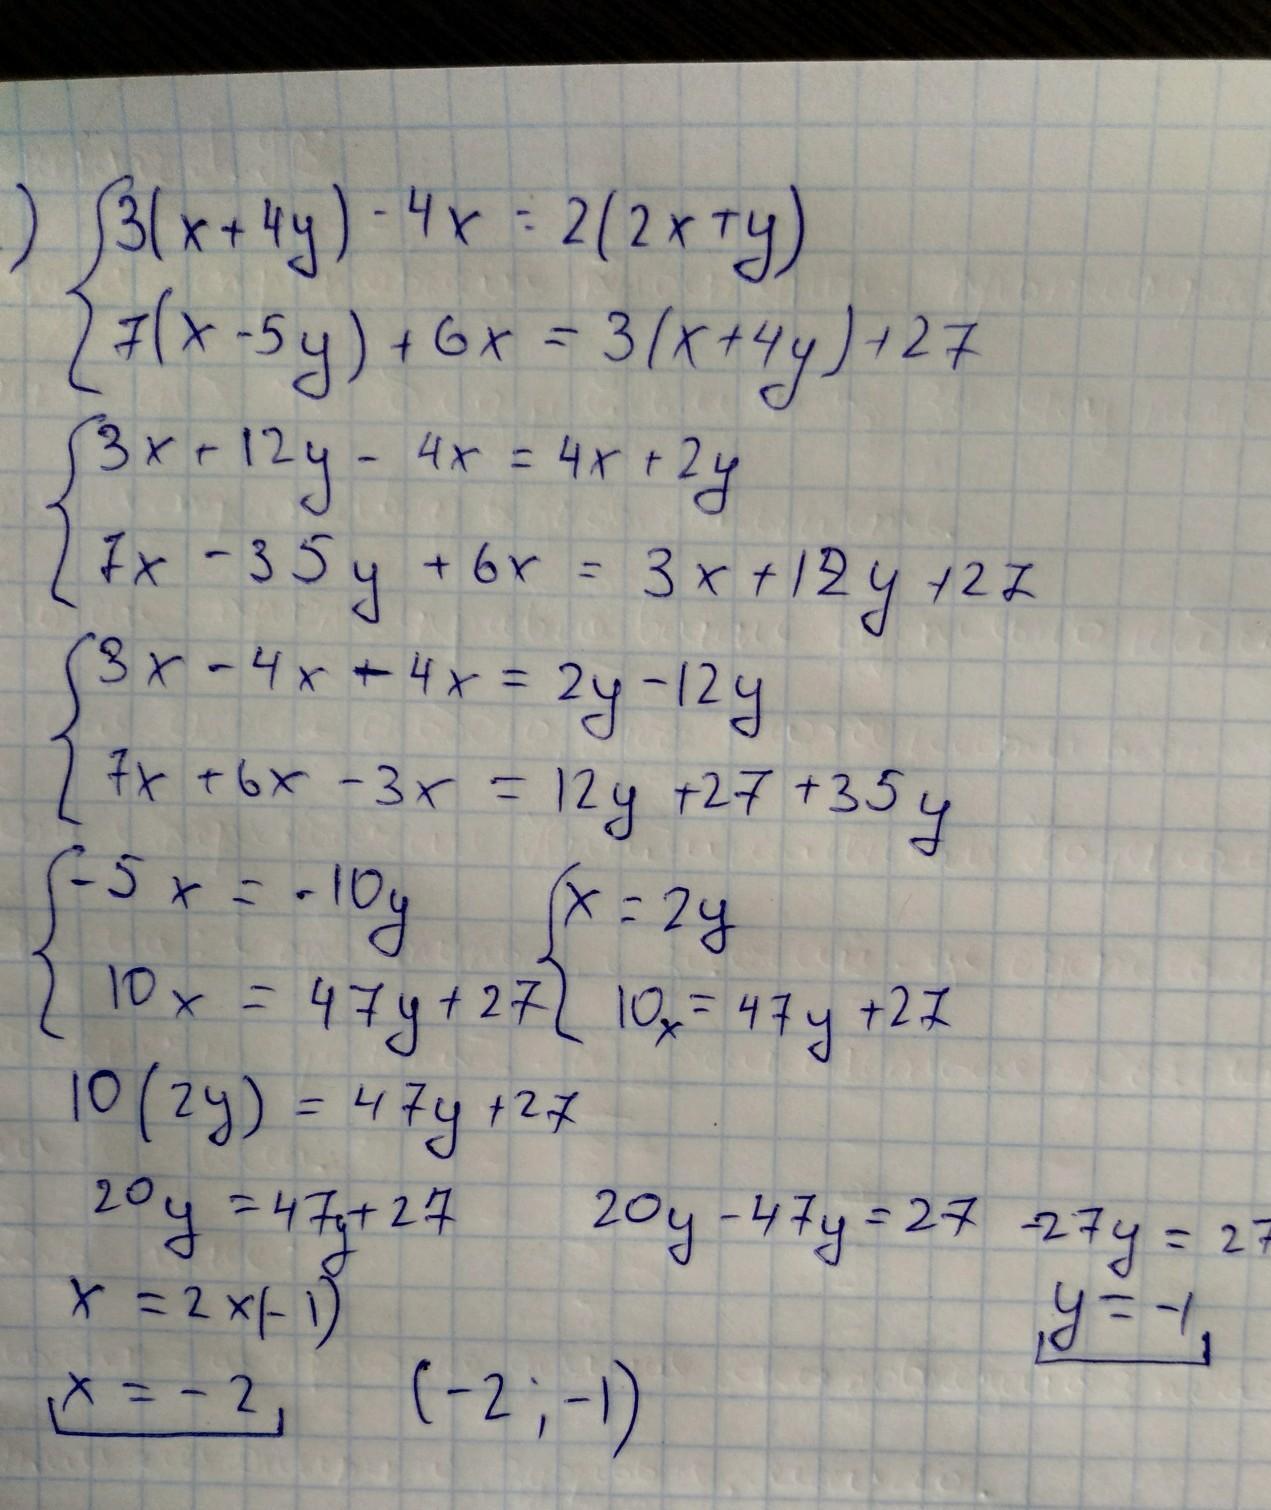 .) { 3(x+4y) - 4x = 2(2x+y)
7(x-5y) + 6x = 3(x+4y)+27
{ 3x + 12y - 4x = 4x + 2y
7x - 35y + 6x = 3x + 12y + 27
{ 3x - 4x - 4x = 2y - 12y
7x + 6x - 3x = 12y + 27 + 35y
{ -5x = -10y { x = 2y
10x = 47y + 27 10x = 47y + 27
10(2y) = 47y + 27
20y = 47y + 27 20y - 47y = 27 -27y = 27
x = 2x(-1) y = -1
x = -2 (-2; -1)